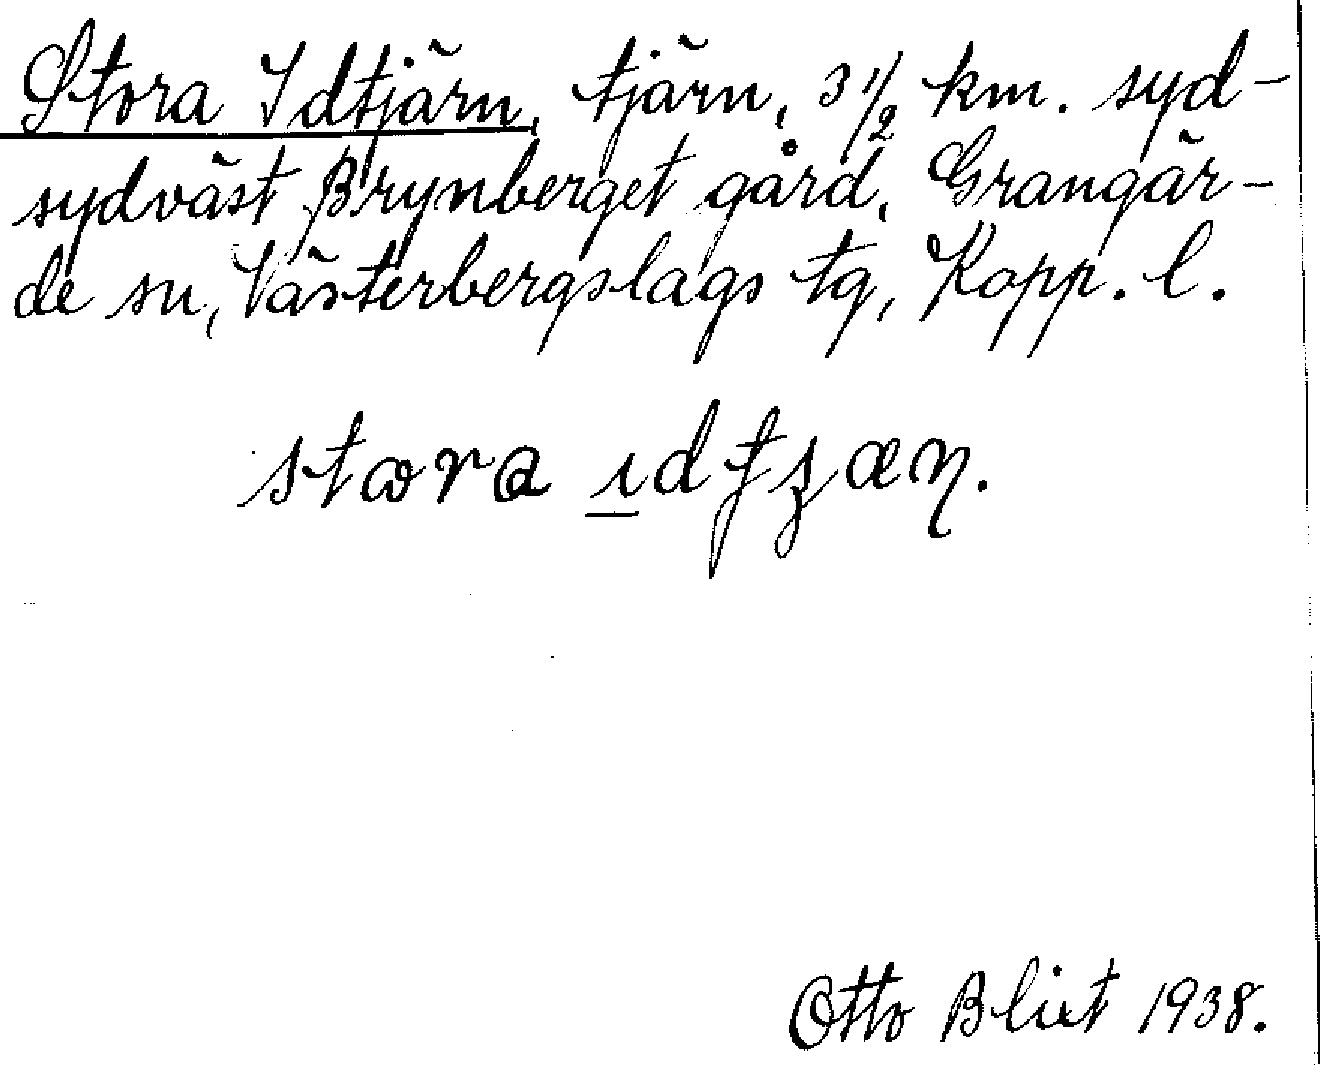 Stora Idtjärn, tjärn, 3 1/2 km. syd-
sydväst Brynberget gård, Grangär-
de sn, Västerbergslags tg, Kopp. l.
stωra ıdtʒæn.
Otto Blixt 1938.